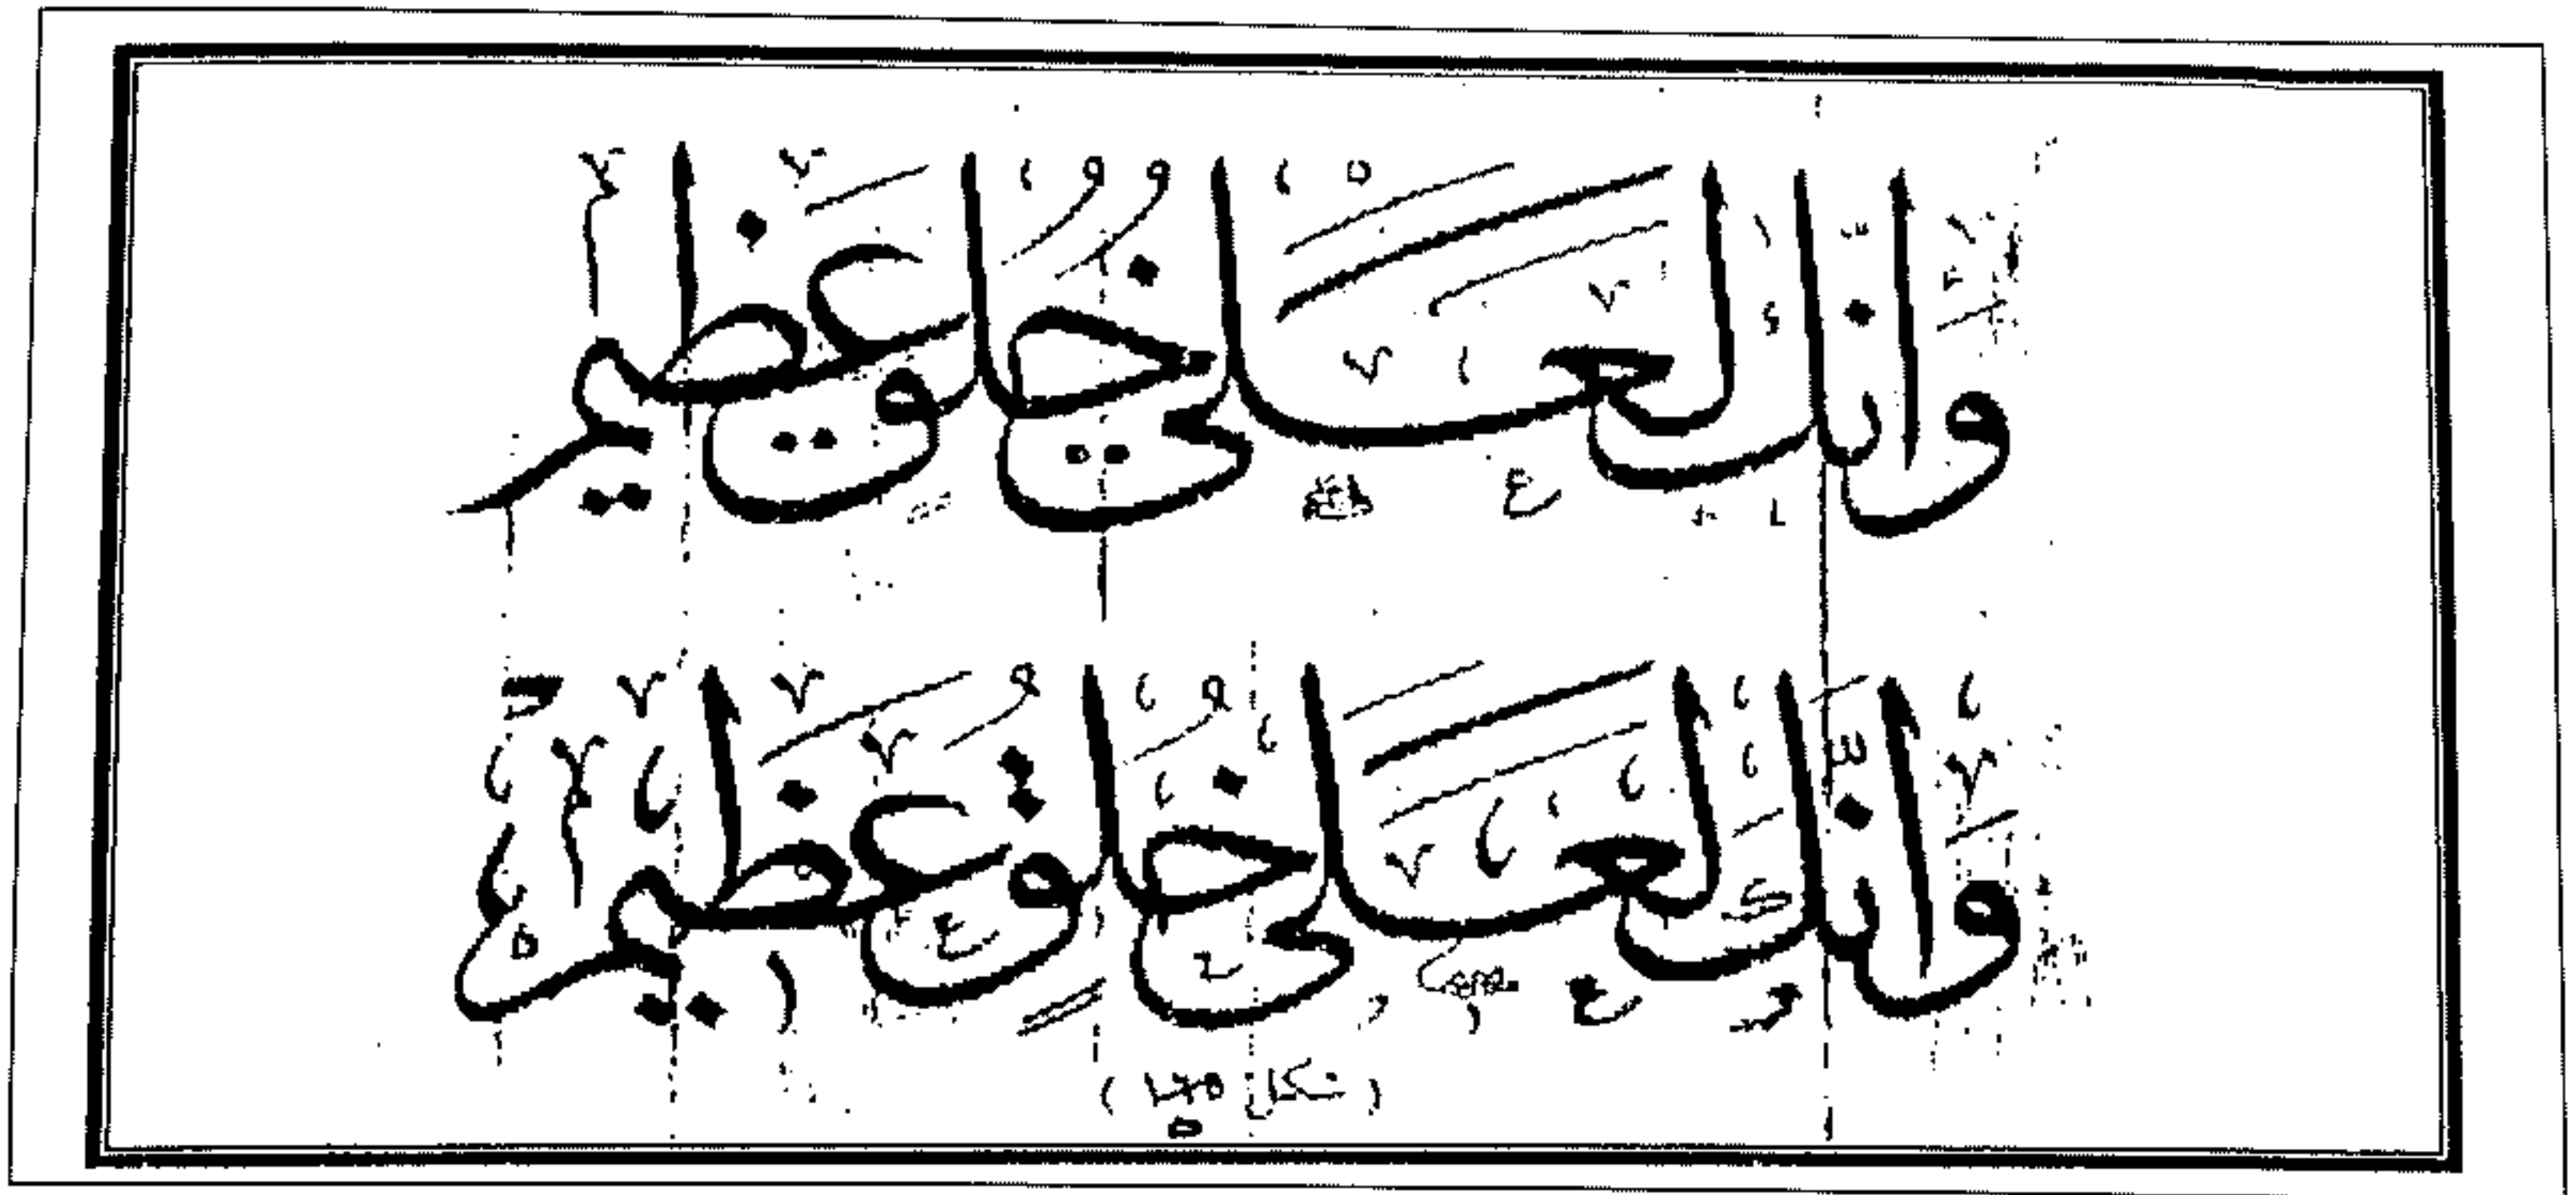 وانك لعلى خلق عظيم
وانك لعلى خلق عظيم
( شكل